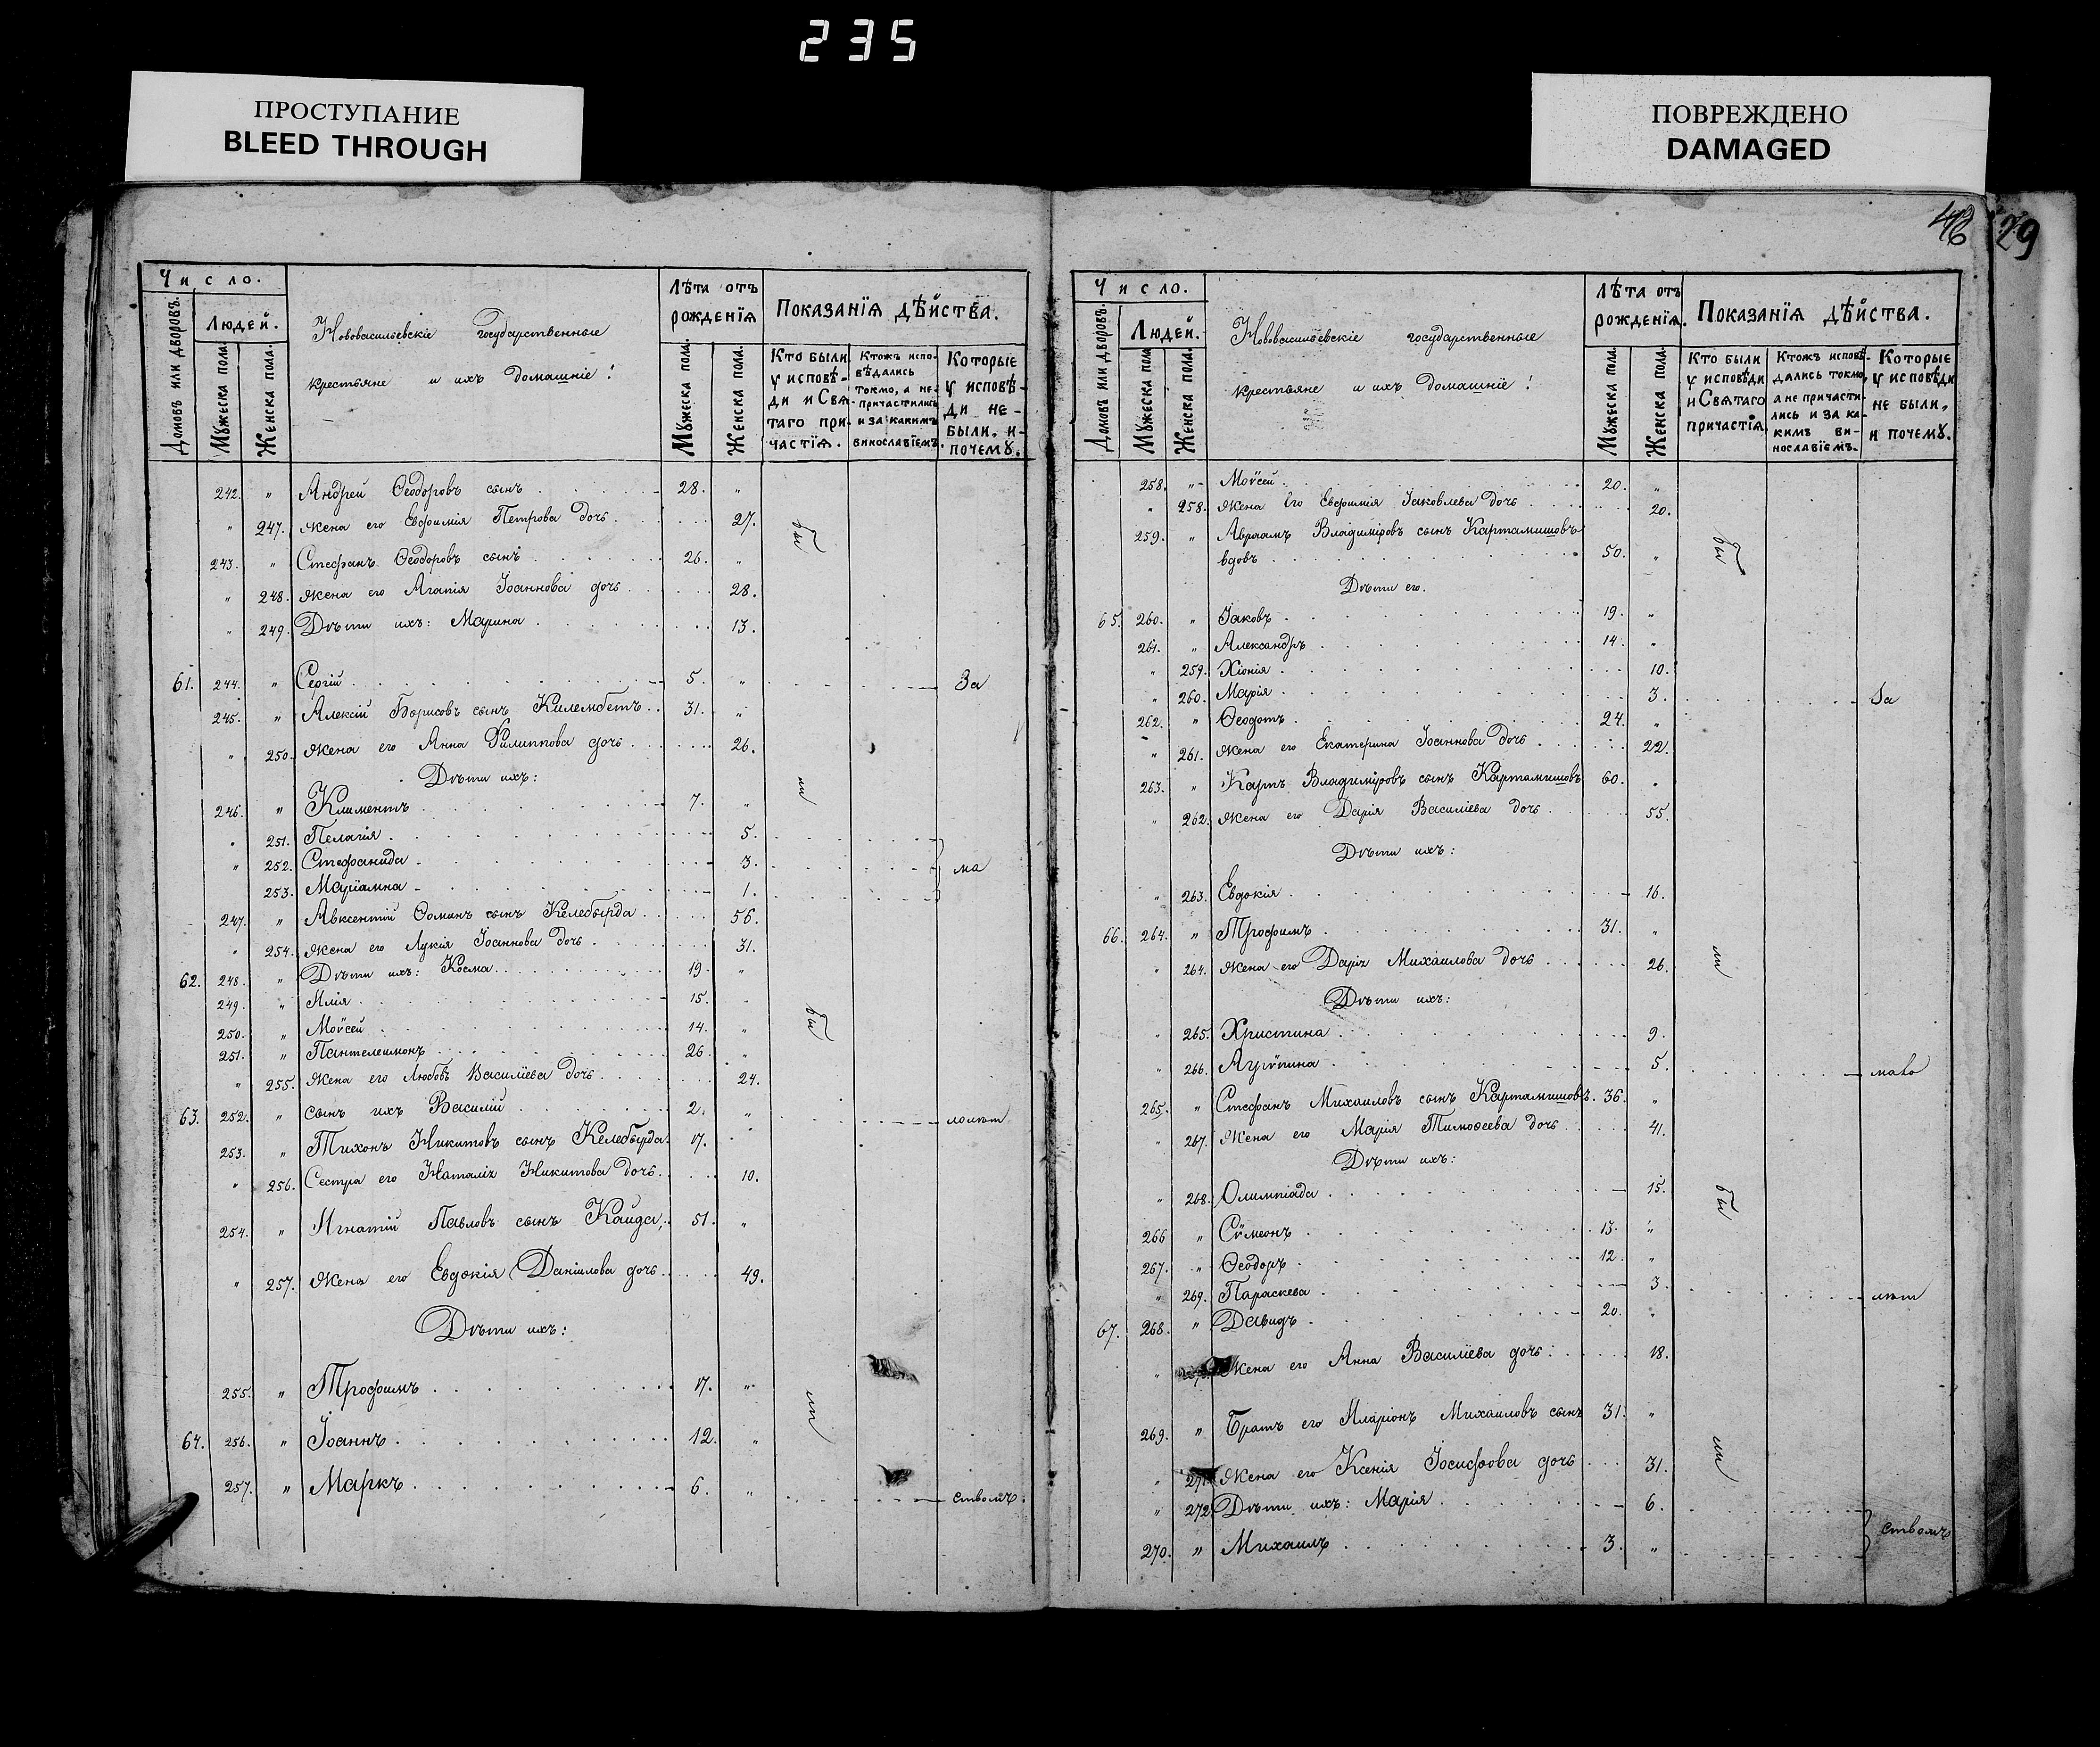 235
ПРОСТУПАНИЕ
BLEED THROUGH
ПОВРЕЖДЕНО
DAMAGED
29
Число.
Домовъ или дворовъ.
Людей.
Мꙋжеска пола.
Женска пола.
Нововасильевскіе государственные
крестьяне и ихъ домашніе:
Лѣта отъ рожденія
Мꙋжеска пола.
Женска пола.
Показанія дѣйства.
Кто были ꙋ исповѣ-
ди и Свя
таго при-
частія.
Ктожъ испо-
вѣдались
токмо, а не-
причастились
и за какимъ
винословіемъ.
Которые
ꙋ исповѣ-
ди не-
были, и-
почемꙋ.
242. " Андрей Ѳеодоровъ сынъ 28. "
" 247. жена его Евфимія Петрова дочь 27. бы
243. " Стефанъ Ѳеодоровъ сынъ 26. "
" 248. жена его Агапія Іоаннова дочь 28.
" 249. Дѣти ихъ: Марина 13.
61. 244. " Сергій 5. " За
245. " Алексій Борисовъ сынъ Килембетъ 31. "
" 250. жена его Анна Филиппова дочь 26.
Дѣти ихъ:
246. " Климентъ 7. "
" 251. Пелагія 5.
" 252. Стефанида 3. ма
253. Маріамна 1.
247. " Авксентій Ѳоминъ сынъ Келебырда 56.
" 254. жена его Лукія Іоаннова дочь 31.
62. 248. " Дѣти ихъ: Косма 19. "
249. " Илія 15. "
250. " Моѵсей 14. " бы
251. " Пантелеимонъ 26. "
" 255. жена его Любовь Василіева дочь 24.
63. 252. " сынъ ихъ Василій 2. " лолѣт
253. " Тихонъ Никитовъ сынъ Келебырда 17. "
" 256. Сестра его Наталія Никитова дочь 10.
254. " Игнатій Павловъ сынъ Кайда, 51. "
" 257. жена его Евдокія Даніилова дочь 49.
Дѣти ихъ:
255. " Трофимъ 17. "
64. 256. " Іоаннъ 12. "
257. " Маркъ 6. " ствомъ.
Число.
Домовъ или дворовъ.
Людей.
Мꙋжеска пола
Женска пола.
Нововасильевскіе государственные
крестьяне и ихъ домашніе:
Лѣта отъ рожденія.
Мꙋжеска пола.
Женска пола.
Показанія дѣйства.
Кто были
ꙋ исповѣди
и Святаго
причастія.
Ктожъ исповѣ-
дались токмо,
а не причасти-
лись и за ка-
кимъ ви-
нословіемъ.
Которые
ꙋ исповѣди
не были,
и почемꙋ.
258. " Моѵсей 20. "
" 258. жена его Евфимія Іаковлева дочь 20.
259. " Авраамъ Владиміровъ сынъ Картамишовъ
вдовъ 50. " бы
Дѣти его.
65. 260. " Іаковъ 19. "
261. " Александръ 14. "
" 259. Хіонія 10.
" 260. Марія 3. За
262. " Ѳеодотъ 24. "
" 261. жена его Екатерина Іоаннова дочь 22.
263. " Карпъ Владиміровъ сынъ Картамишовъ 60. "
" 262. жена его Дарія Василіева дочь 55.
Дѣти ихъ:
" 263. Евдокія 16.
66. 264. " Трофимъ 31. "
" 264. жена его Дарія Михаилова дочь 26.
Дѣти ихъ:
" 265. Христина 9.
" 266. Агрѵпина 5. мало
265. " Стефанъ Михаиловъ сынъ Картамишовъ. 36. "
" 267. жена его Марія Тимоѳеева дочь 41.
Дѣти ихъ:
" 268. Олимпіада 15. бы
266 " Сѵмеонъ 13. "
267. " Ѳеодоръ 12. "
" 269. Параскева 3. лѣт
67. 268. " Давидъ 20. "
" жена его Анна Василіева дочь: 18.
269. " Братъ его Иларіонъ Михаиловъ сынъ 31. "
" 271. жена его Ксенія Іосифова дочь 31.
" 272. Дѣти ихъ: Марія 6.
270. " Михаилъ 3. " ствомъ